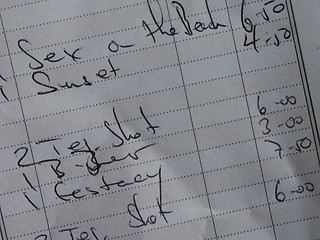 1 Sex on the Beach 6.50
1 Sunset 4.50
2 Teq. Shot 6-00
1 B. 3-00
1 7-50
2 Teq. Shot 6-00